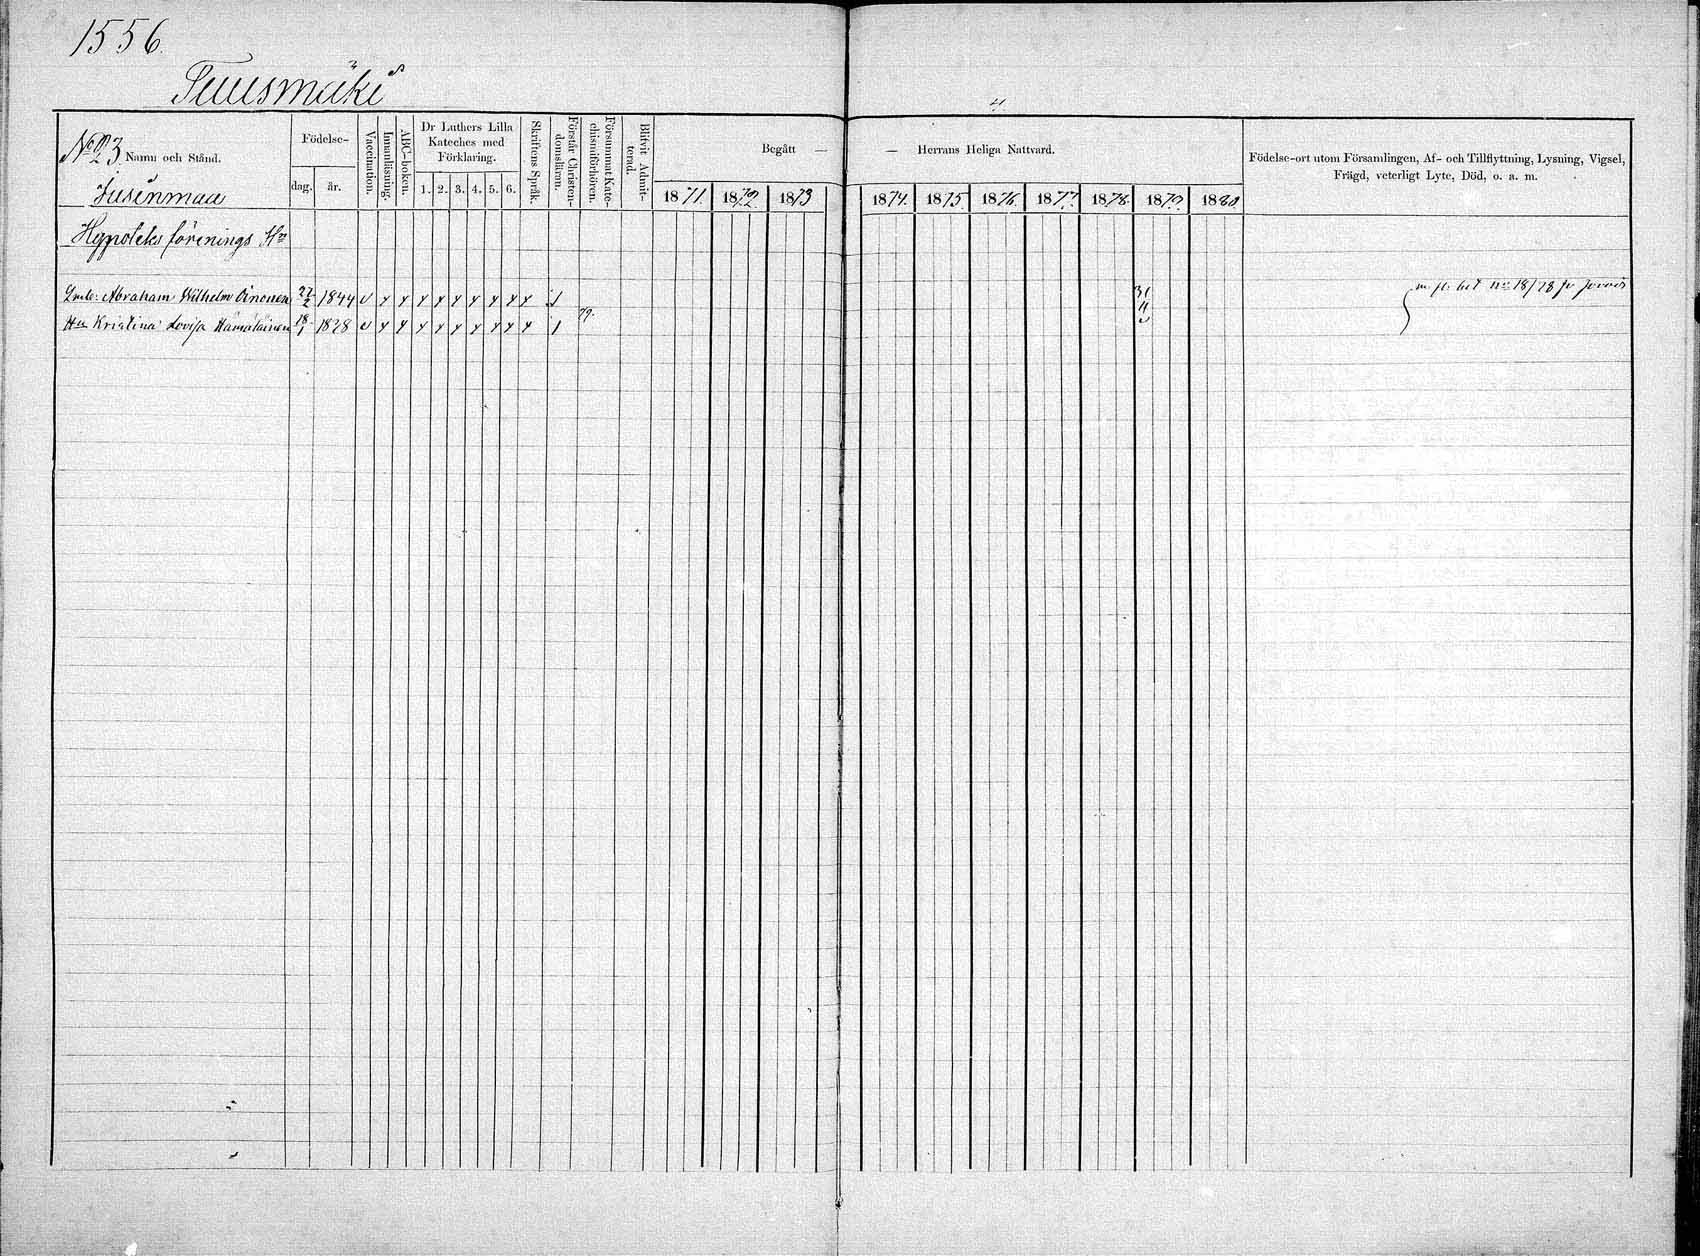 1556.
Tuusmäki
4.
No 23 Namn och Stånd.
Födelse-
dag. år.
Vaccination.
Innanläsning.
ABC-boken.
Dr Luthers Lilla
Kateches med
Förklaring.
1. 2. 3. 4. 5. 6.
Skriftens Språk.
Förstår Christen-
domsläran.
Försummat Kate-
chismiförhören.
Blifvit Admit-
terad.
Begått — — Herrans Heliga Nattvard.
1871. 1872 1873 1874. 1875. 1876. 1877. 1878. 1879. 1880
Födelse-ort utom Församlingen, Af- och Tillflyttning, Lysning, Vigsel,
Frägd, veterligt Lyte, Död, o. a. m.
Jusinmaa
Hypoteks förenings Hn
Abraham Wilhelm Oinonen 27/2 1844
Hu Kristina Lovisa Hämäläinen 18/1 1828 79.
31
4
m. fl. bet no 18/78 fr Jorois